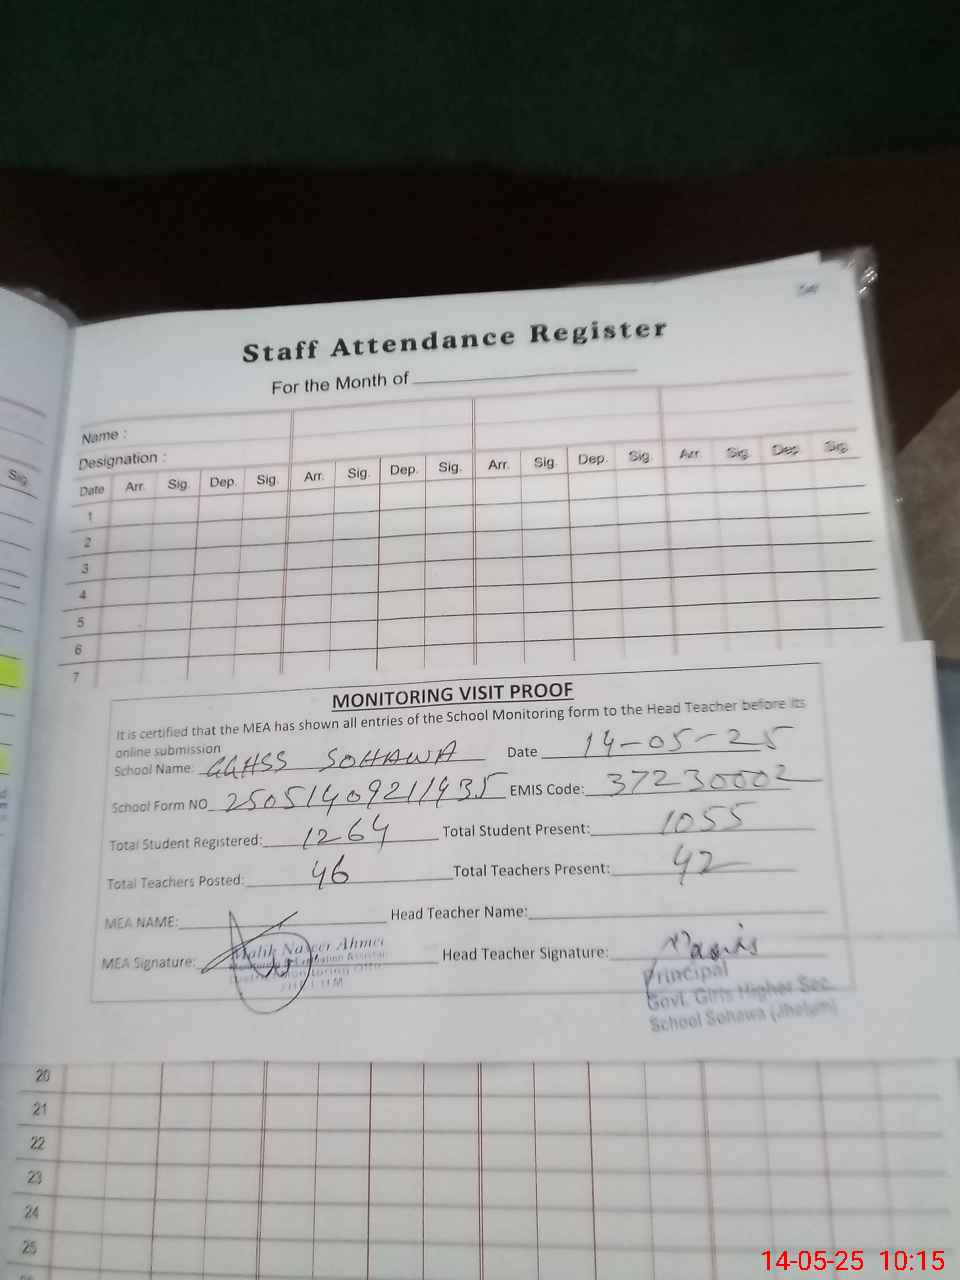 Staff Attendance Register
For the Month of
Name :
Designation :
Sig.
Date Arr. Sig. Dep. Sig. Arr. Sig. Dep. Sig. Arr. Sig. Dep. Sig. Arr. Sig. Dep. Sig.
1
2
3
4
5
6
7
MONITORING VISIT PROOF
It is certified that the MEA has shown all entries of the School Monitoring form to the Head Teacher before its
online submission
School Name: GGHSS SOHAWA Date 14-05-25
School Form NO 25051409211435 EMIS Code: 37230002
Total Student Registered: 1264 Total Student Present: 1055
Total Teachers Posted: 46 Total Teachers Present: 42
MEA NAME: Head Teacher Name:
MEA Signature: Malik Naseer Ahmed Head Teacher Signature:
Principal
Govt. Girls Higher Sec.
School Sohawa (Jhelum)
20
21
22
23
24
25
14-05-25 10:15